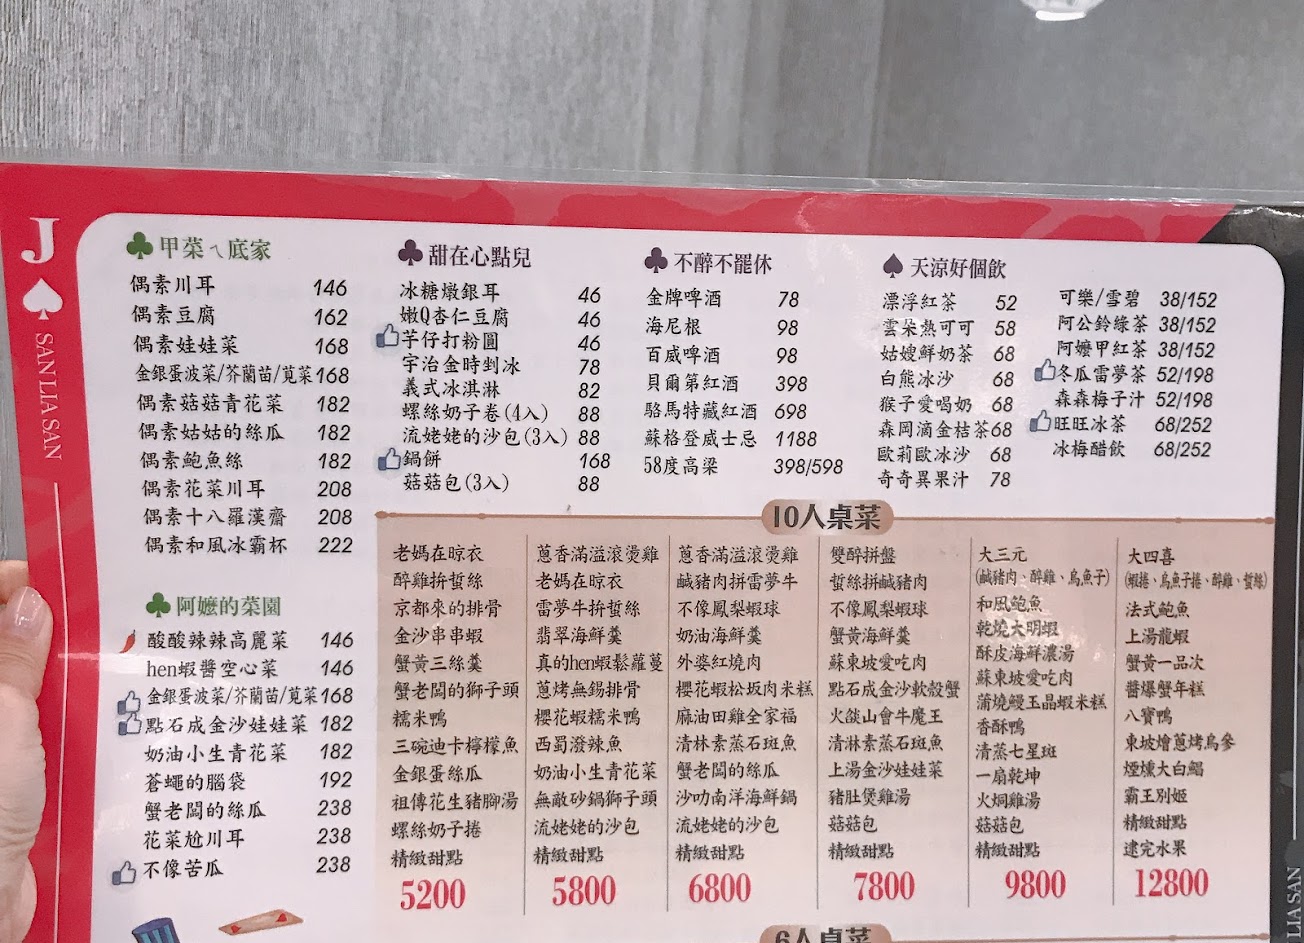 J
SAN LIA SAN
甲菜ㄟ底家
偶素川耳 146
偶素豆腐 162
偶素娃娃菜 168
金銀蛋波菜/芥蘭苗/莧菜 168
偶素菇菇青花菜 182
偶素姑姑的絲瓜 182
偶素鮑魚絲 182
偶素花菜川耳 208
偶素十八羅漢齋 208
偶素和風冰霸杯 222
阿嬤的菜園
酸酸辣辣高麗菜 146
hen蝦醬空心菜 146
金銀蛋波菜/芥蘭苗/莧菜 168
點石成金沙娃娃菜 182
奶油小生青花菜 182
蒼蠅的腦袋 192
蟹老闆的絲瓜 238
花菜尬川耳 238
不像苦瓜 238
甜在心點兒
冰糖燉銀耳 46
嫩Q杏仁豆腐 46
芋仔打粉圓 46
宇治金時剉冰 78
義式冰淇淋 82
螺絲奶子卷(4入) 88
流姥姥的沙包(3入) 88
鍋餅 168
菇菇包(3入) 88
不醉不罷休
金牌啤酒 78
海尼根 98
百威啤酒 98
貝爾第紅酒 398
駱馬特藏紅酒 698
蘇格登威士忌 1188
58度高梁 398/598
天涼好個飲
漂浮紅茶 52
雲朵熱可可 58
姑嫂鮮奶茶 68
白熊冰沙 68
猴子愛喝奶 68
森岡滴金桔茶 68
歐莉歐冰沙 68
奇奇異果汁 78
可樂/雪碧 38/152
阿公鈴綠茶 38/152
阿嬤甲紅茶 38/152
冬瓜雷夢茶 52/198
森森梅子汁 52/198
旺旺冰茶 68/252
冰梅醋飲 68/252
10人桌菜
老媽在晾衣
醉雞拚蜇絲
京都來的排骨
金沙串串蝦
蟹黃三絲羹
蟹老闆的獅子頭
糯米鴨
三碗迪卡檸檬魚
金銀蛋絲瓜
祖傳花生豬腳湯
螺絲奶子捲
精緻甜點
5200
蔥香滿溢滾燙雞
老媽在晾衣
雷夢牛拚蜇絲
翡翠海鮮羹
真的hen蝦鬆蘿蔓
蔥烤無錫排骨
櫻花蝦糯米鴨
西蜀潑辣魚
奶油小生青花菜
無敵砂鍋獅子頭
流姥姥的沙包
精緻甜點
5800
蔥香滿溢滾燙雞
鹹豬肉拼雷夢牛
不像鳳梨蝦球
奶油海鮮羹
外婆紅燒肉
櫻花蝦松坂肉米糕
麻油田雞全家福
清林素蒸石斑魚
蟹老闆的絲瓜
沙叻南洋海鮮鍋
流姥姥的沙包
精緻甜點
6800
雙醉拼盤
蜇絲拼鹹豬肉
不像鳳梨蝦球
蟹黃海鮮羹
蘇東坡愛吃肉
點石成金沙軟殼蟹
火燄山會牛魔王
清淋素蒸石斑魚
上湯金沙娃娃菜
豬肚煲雞湯
菇菇包
精緻甜點
7800
大三元
(鹹豬肉、醉雞、烏魚子)
和風鮑魚
乾燒大明蝦
酥皮海鮮濃湯
蘇東坡愛吃肉
蒲燒鰻玉晶蝦米糕
香酥鴨
清蒸七星斑
一扇乾坤
火焗雞湯
菇菇包
精緻甜點
9800
大四喜
(蝦捲、烏魚子捲、醉雞、蜇絲)
法式鮑魚
上湯龍蝦
蟹黃一品次
醬爆蟹年糕
八寶鴨
東坡燴蔥烤烏參
煙燻大白鯧
霸王別姬
精緻甜點
逮完水果
12800
6人桌菜
LIA SAN